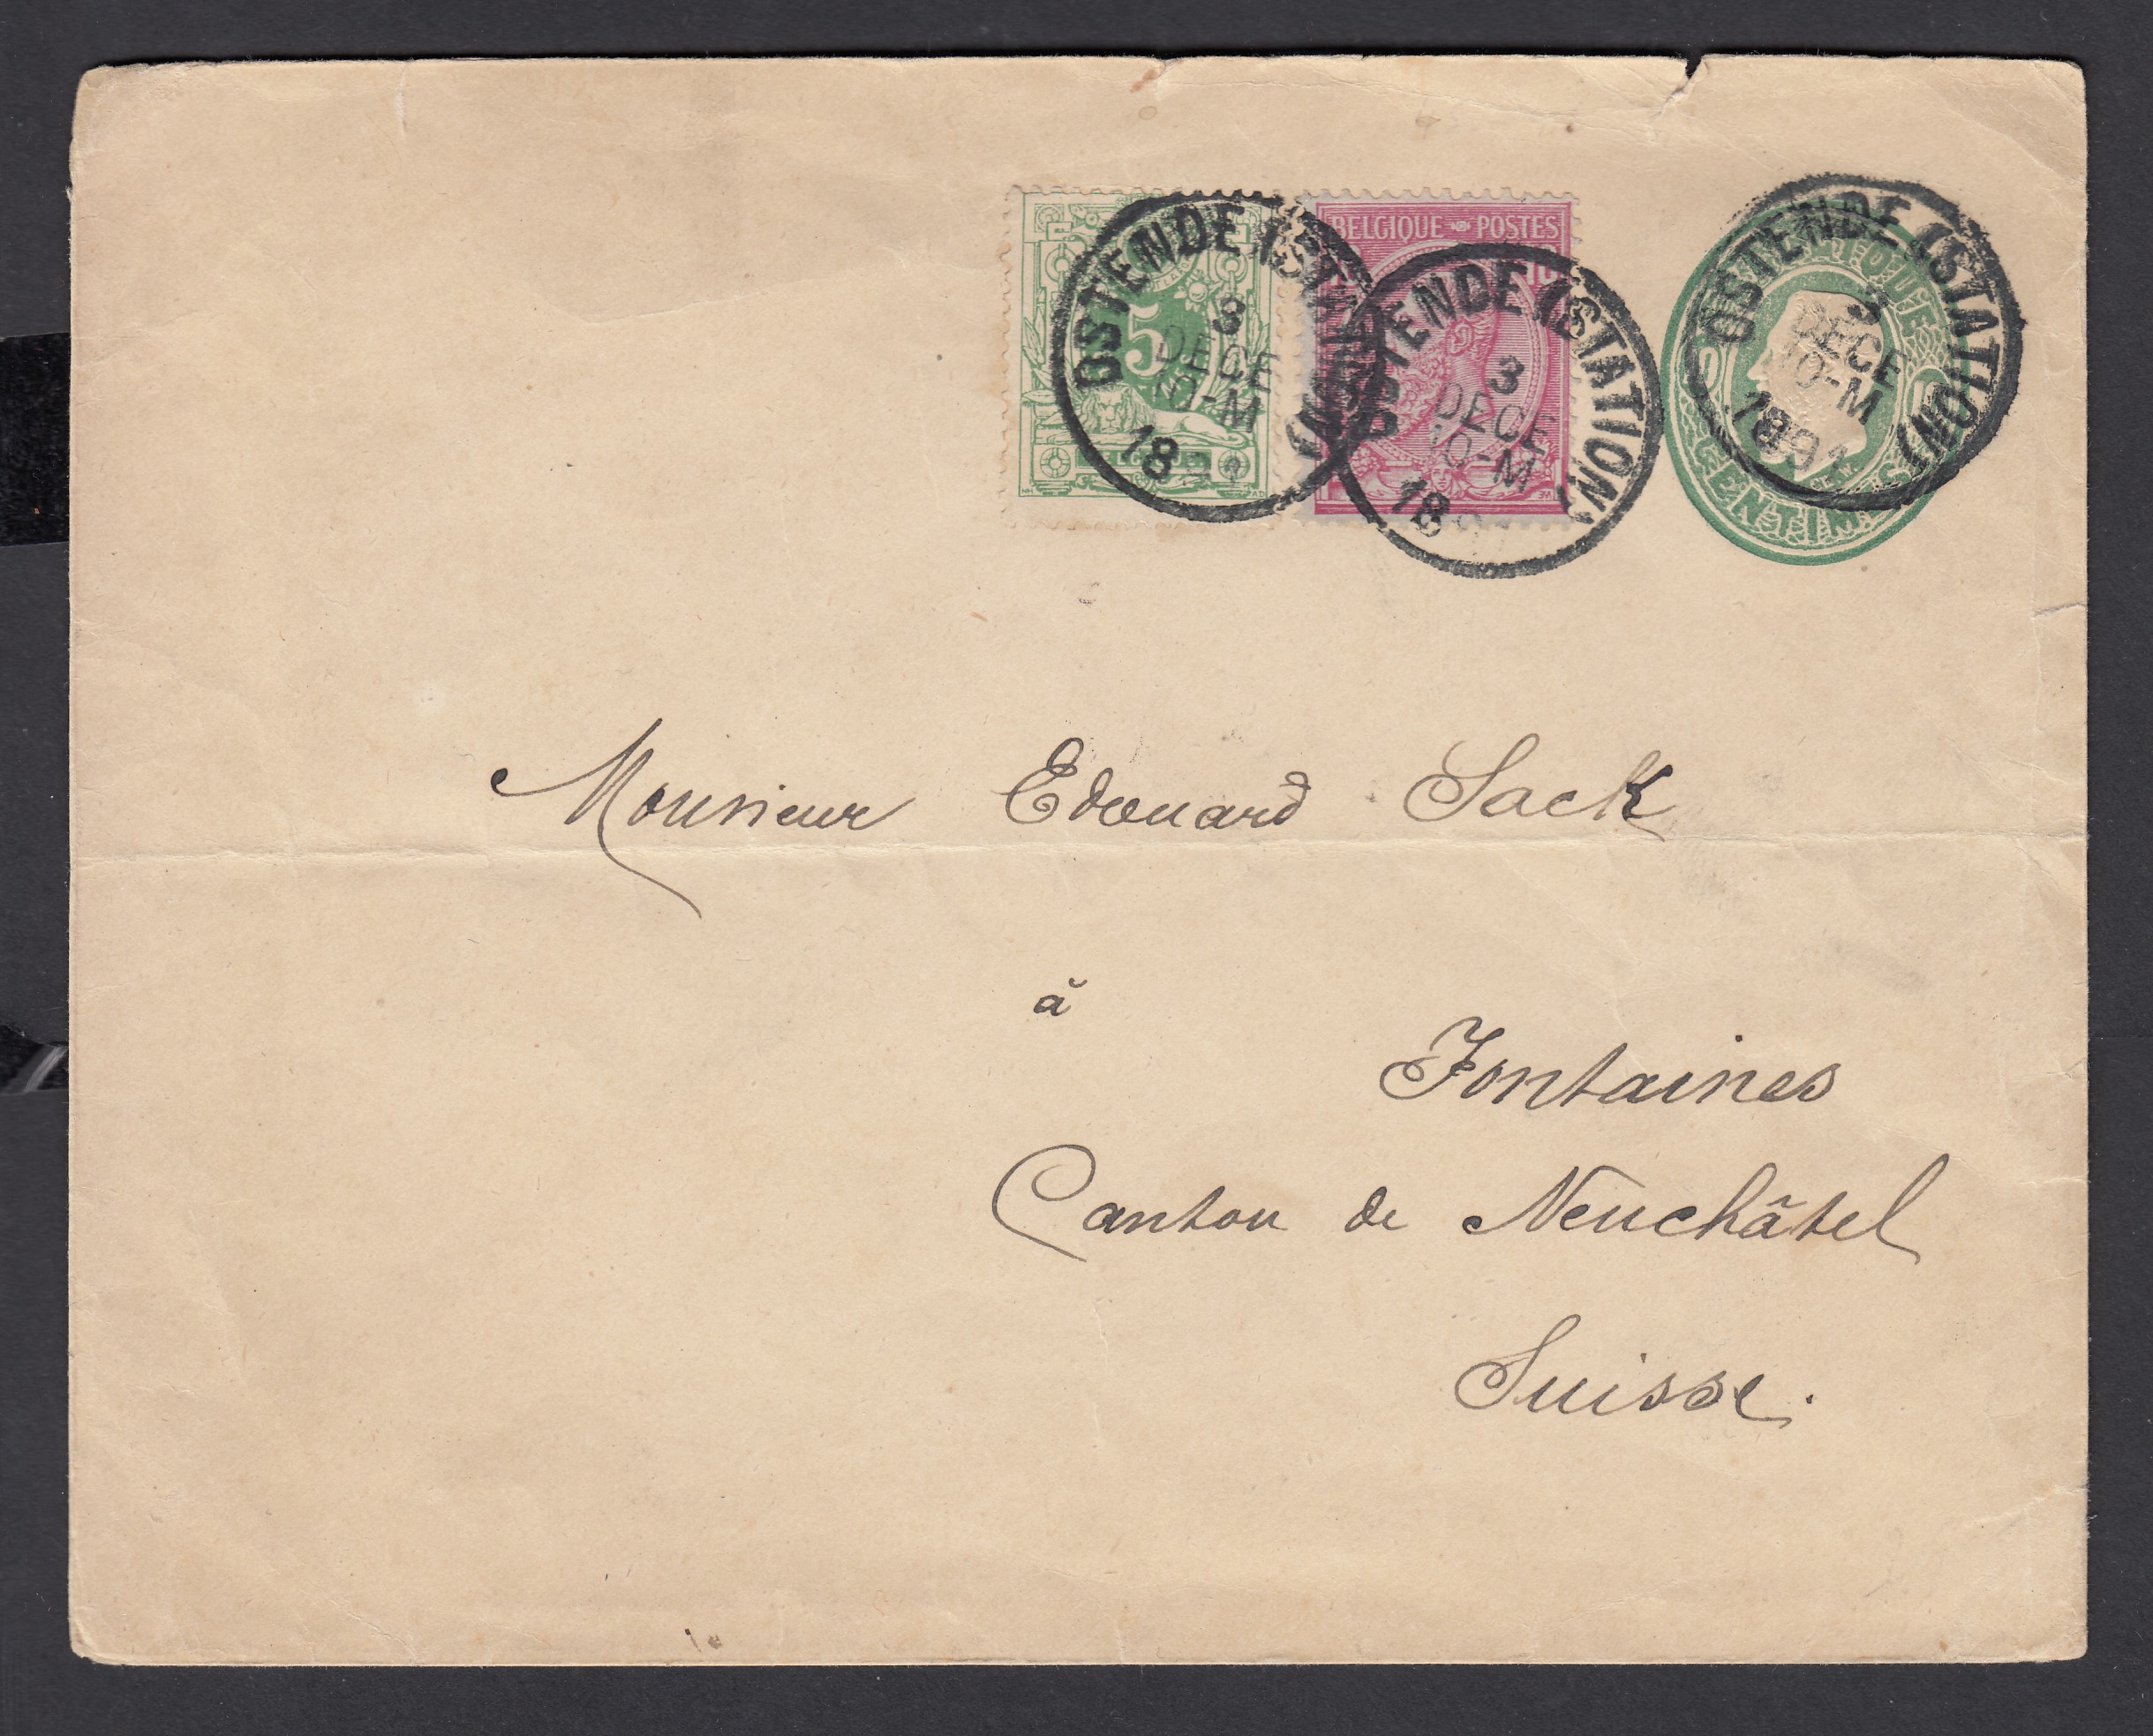 BELGIQUE POSTES
10
5
OSTENDE (STATION)
3
DECE
10-M
18
OSTENDE (STATION)
3
DECE
10-M
18
OSTENDE (STATION)
3
DECE
10-M
189
10
CENTIMES
Monsieur Edouard Sack
à
Fontaines
Canton de Neuchâtel
Suisse.